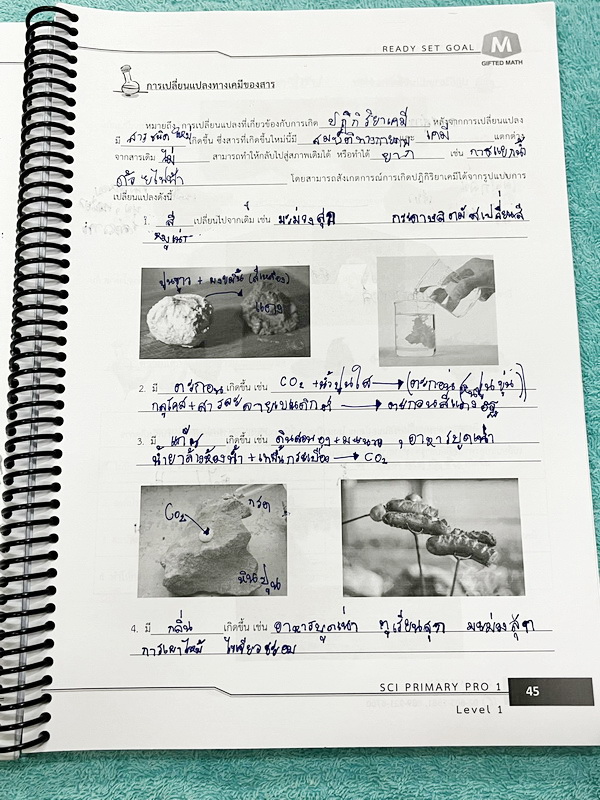 READY SET GOAL
M
GIFTED MATH
การเปลี่ยนแปลงทางเคมีของสาร
หมายถึง การเปลี่ยนแปลงที่เกี่ยวข้องกับการเกิด ปฏิกิริยาเคมี หลังจากการเปลี่ยนแปลง
มี สารชนิดใหม่ เกิดขึ้น ซึ่งสารที่เกิดขึ้นใหม่นี้มี สมบัติทางกายภาพ และ เคมี แตกต่าง
จากสารเดิม ไม่ สามารถทำให้กลับไปสู่สภาพเดิมได้ หรือทำได้ ยาก เช่น การแยกน้ำ
ด้วยไฟฟ้า โดยสามารถสังเกตการณ์การเกิดปฏิกิริยาเคมีได้จากรูปแบบการ
เปลี่ยนแปลงดังนี้
1. สี เปลี่ยนไปจากเดิม เช่น มะม่วงสุก กระดาษลิตมัสเปลี่ยนสี
ปูนขาว + ขมิ้น (สีเหลือง)
แดง
2. มี ตะกอน เกิดขึ้น เช่น CO₂ + น้ำปูนใส → (ตะกอน หินปูน ขุ่น)
กลูโคส + สารละลายเบเนดิกต์ → ตะกอนสีแดงอิฐ
3. มี แก๊ส เกิดขึ้น เช่น ดินสอพอง + มะนาว , อาหารบูดเน่า
น้ำยาล้างห้องน้ำ + เหล็กกระเบื้อง → CO₂
CO₂
กรด
หินปูน
4. มี กลิ่น เกิดขึ้น เช่น อาหารบูดเน่า ทุเรียนสุก มะม่วงสุก
การเผาไหม้
SCI PRIMARY PRO 1
45
Level 1